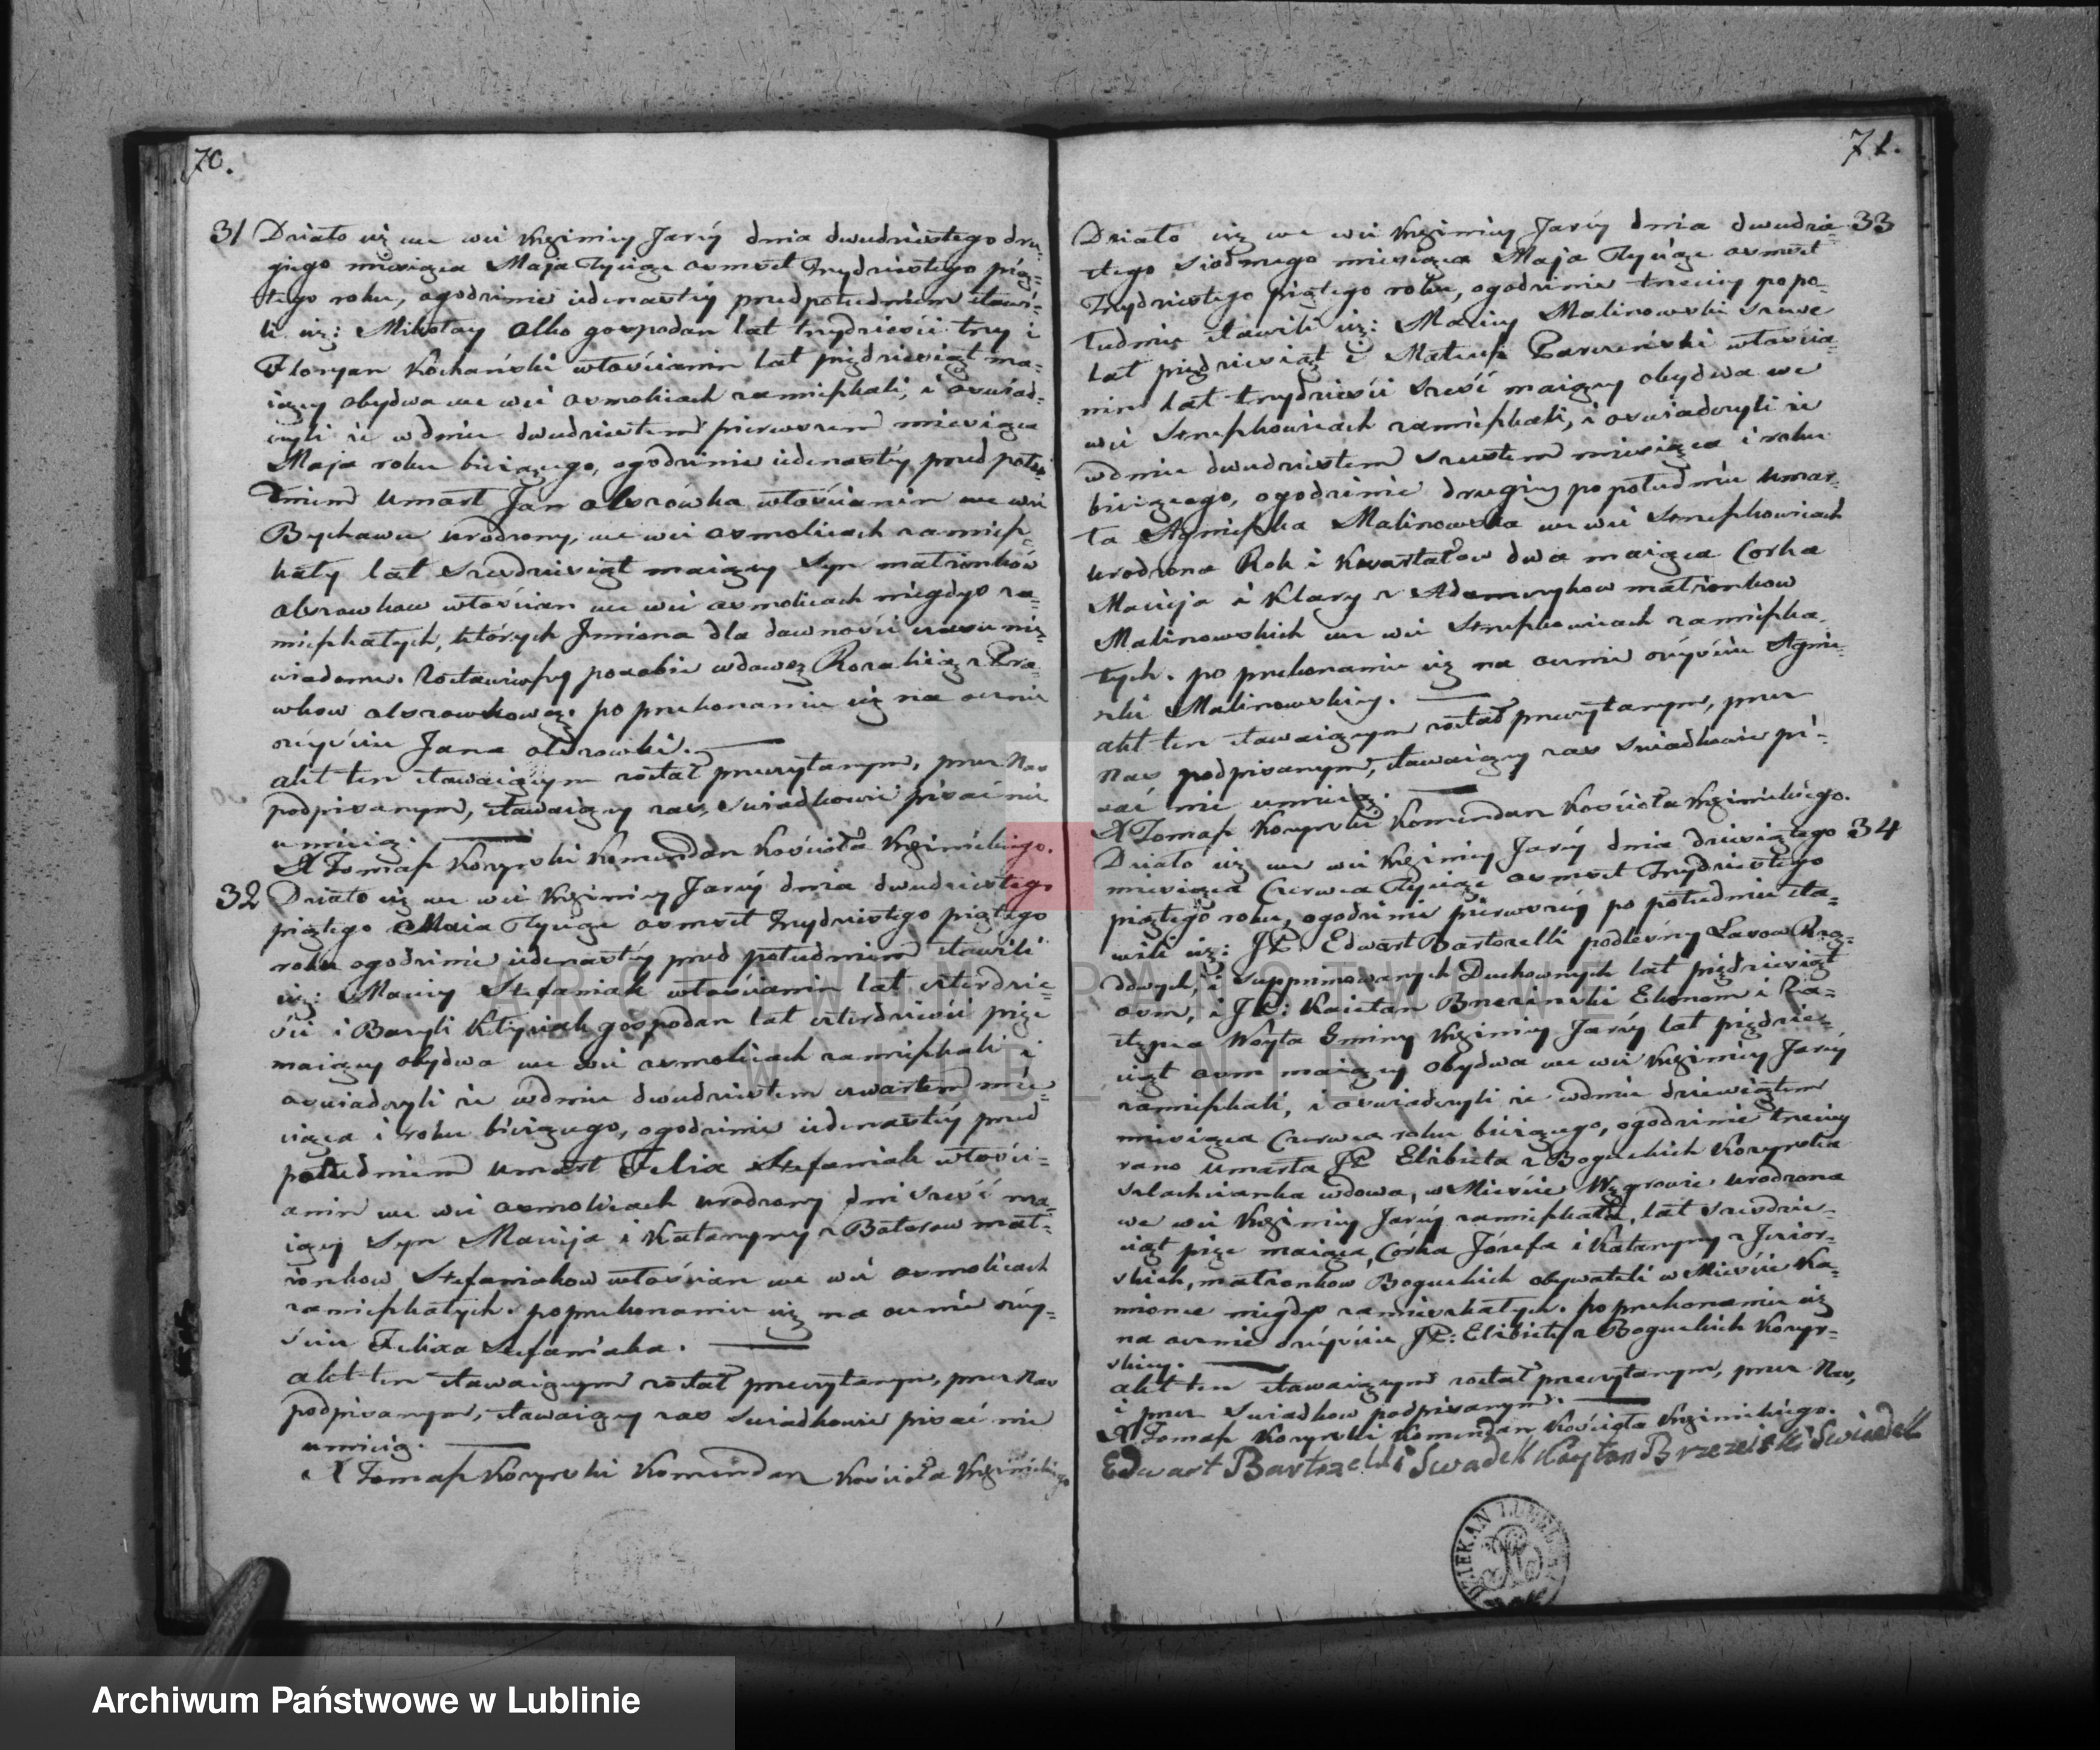 70.
31 Działo się we wsi Krzcinicy Jarey dnia dwudziestego dru-
giego miesiąca Maja Tysiąc osmset Trzydziestego pią-
tego roku, ogodzinie iedenastey przedpołudniem stawi-
li się: Mikołay gospodarz lat trzydzieści trzy i
Floryan Kochański włościanin lat pięćdziesiąt ma-
iący obydwa we wsi osmolicach zamieszkali, i oswiad-
czyli że w dniu dwudziestem pierwszem miesiąca
Maja roku bieżącego, ogodzinie iedenastey przed połu-
dniem umarł Jan włościanin we wsi
Bychawce urodzony, we wsi osmolicach zamiesz-
kały lat sześdziesiąt maiący syn małżonków
włościan we wsi osmolicach niegdys za-
mieszkałych, których Jmiona dla dawności czasu nie-
wiadome. Zostawiwszy posobie wdowę Rozalią z
po przekonaniu się na ocznie
zeyściu Jana
akt ten stawaiącym został przeczytanym, przez Nas
podpisanym, stawaiący zaś swiadkowie pisać nie
umieią.
X Tomasz Kozyrski Komendarz Kościoła
32 Działo się we wsi Jarey dnia dwudziestego
piątego Maia Tysiąc osmset Trzydziestego piątego
roku ogodzinie iedenastey przed południem stawili
się: Maciey Stefaniak włościanin lat czterdzie-
ści i Bazyli gospodarz lat czterdzieści pięc
maiący obydwa we wsi osmolicach zamieszkali i
oswiadczyli że wdniu dwudziestem czwartem mie-
siąca i roku bieżącego, ogodzinie iedenastey przed
południem umarł Felix Stefaniak włości-
anin we wsi osmolicach urodzony dni sześć ma-
iący Syn Macieja i Katarzyny z Batorow mał-
żonkow Stefaniakow włościan we wsi osmolicach
zamieszkałych. po przekonaniu się na ocznie zey-
ściu Felixa Stefaniaka.
akt ten stawaiącym został przeczytanym, przez Nas
podpisanym, stawaiący zaś swiadkowie pisać nie
umieią.
X Tomasz Kozyrski Komendarz Kościoła
71.
Działo się we wsi Jarey dnia dwudzie- 33
stego siodmego miesiąca Maja Tysiąc osmset
Trzydziestego piątego roku, ogodzinie trzeciey popo-
łudniu stawili się: Maciey Malinowski szewc
lat pięćdziesiąt i Mateusz włościa-
nin lat trzydzieści sześć maiący obydwa we
wsi Strzeszkowicach zamieszkali, i oswiadczyli że
wdniu dwudziestem szostem miesiąca i roku
bieżącego, ogodzinie drugiey po południu umar-
ła Agnieszka Malinowska we wsi Strzeszkowicach
urodzona Rok i kwartałow dwa maiąca Corka
Macieja i Klary z Adamczykow małżonkow
Malinowskich we wsi Strzeszkowicach zamieszka-
łych. po przekonaniu się na ocznie zeyściu Agnie-
szki Malinowskiey.
akt ten stawaiącym został przeczytanym, przez
Nas podpisanym, stawaiący zaś swiadkowie pi-
sać nie umieią.
X Tomasz Kozyrski Komendarz Kościoła
Działo się we wsi Jarey dnia dziewiątego 34
miesiąca Czerwca Tysiąc osmset Trzydziestego
piątego roku, ogodzinie pierwszey po południu sta-
wili się: JP. Edwart Bartozelli podleśny Lasow Rzą-
dowych, i supprimowanych Duchownych lat pięćdziesiąt
osm, i JP: Kaietan Brzeziński Ekonom i Za-
stępca Woyta Gminy Jarey lat pięćdzie-
siąt osm maiący obydwa we wsi Jarey
zamieszkali, i oswiadczyli że wdniu dziewiątem
miesiąca Czerwca roku bieżącego, ogodzinie trzeciey
rano umarła JP Elzbieta z Boguckich Kozyrska
szlachcianka wdowa, w Mieście Węgrowie urodzona
we wsi Jarey zamieszkała, lat sześdzie-
siąt pięc maiąca, Córka Józefa i Katarzyny z Jezior-
skich, małżonkow Boguckich obywateli w Mieście Ka-
mionce niegdys zamieszkałych. po przekonaniu się
na ocznie zeyściu JP: Elzbiety z Boguckich Kozyr-
skiey.
akt ten stawaiącym został przeczytanym, przez Nas,
i przez Swiadkow podpisanym.
X Tomasz Kozyrski Komendarz Kościoła
Edwart Bartozelli Swadek Kaytan Brzezinski Swiadek
ARCHIWUM PAŃSTWOWE
W LUBLINIE
DZIEKAN
Archiwum Państwowe w Lublinie